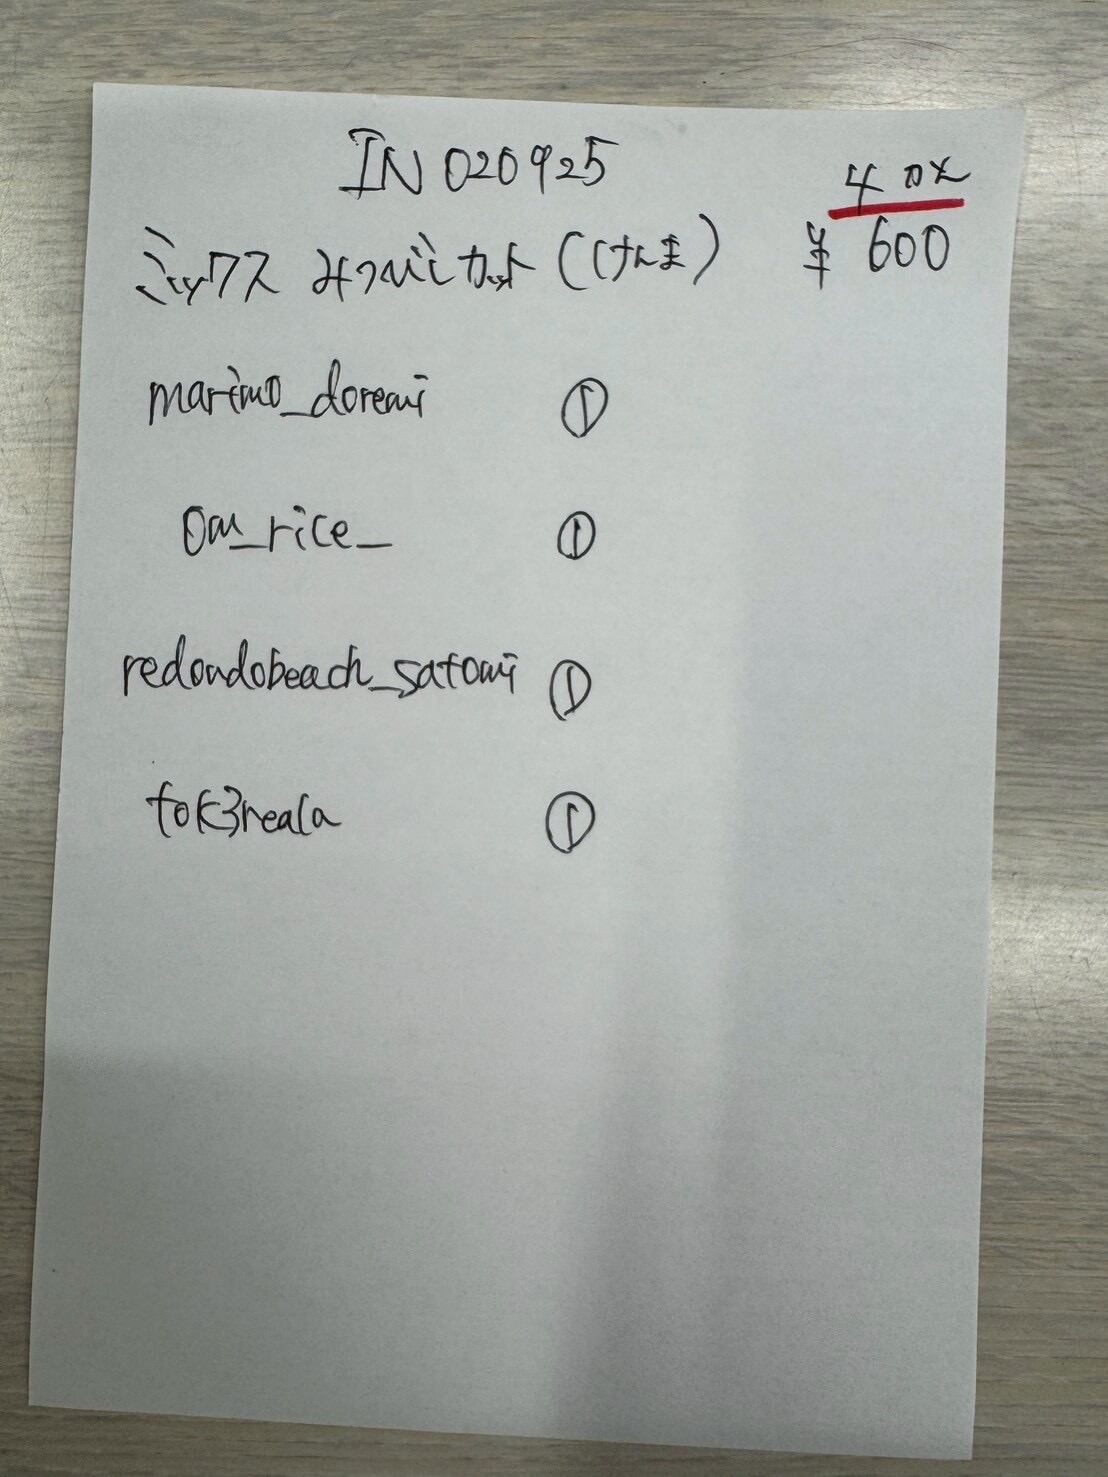 IN 020925
4 コメ
ミックス みつバチ カット (けんま) ¥ 600
marimo_doremi ①
om_rice_ ①
redondobeach_satomi ①
tok3reala ①